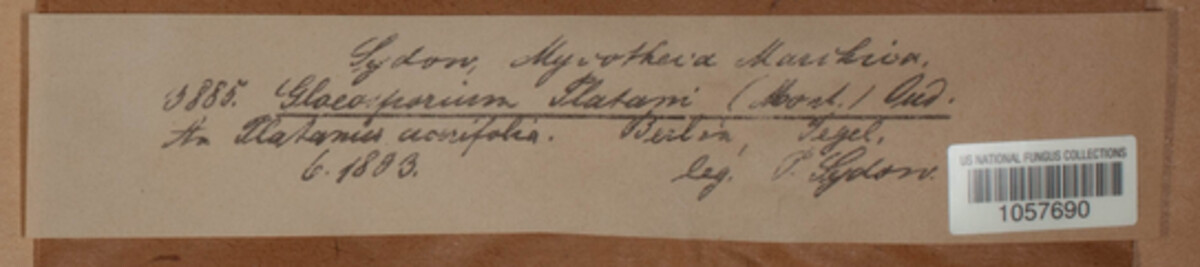 Sydow, Mycotheca Marchica.
3885. Gloeosporium Platani (Mont.) Oud.
An Platanus acerifolia. Berlin, Tegel.
6. 1893. leg. P. Sydow.
US NATIONAL FUNGUS COLLECTIONS
1057690